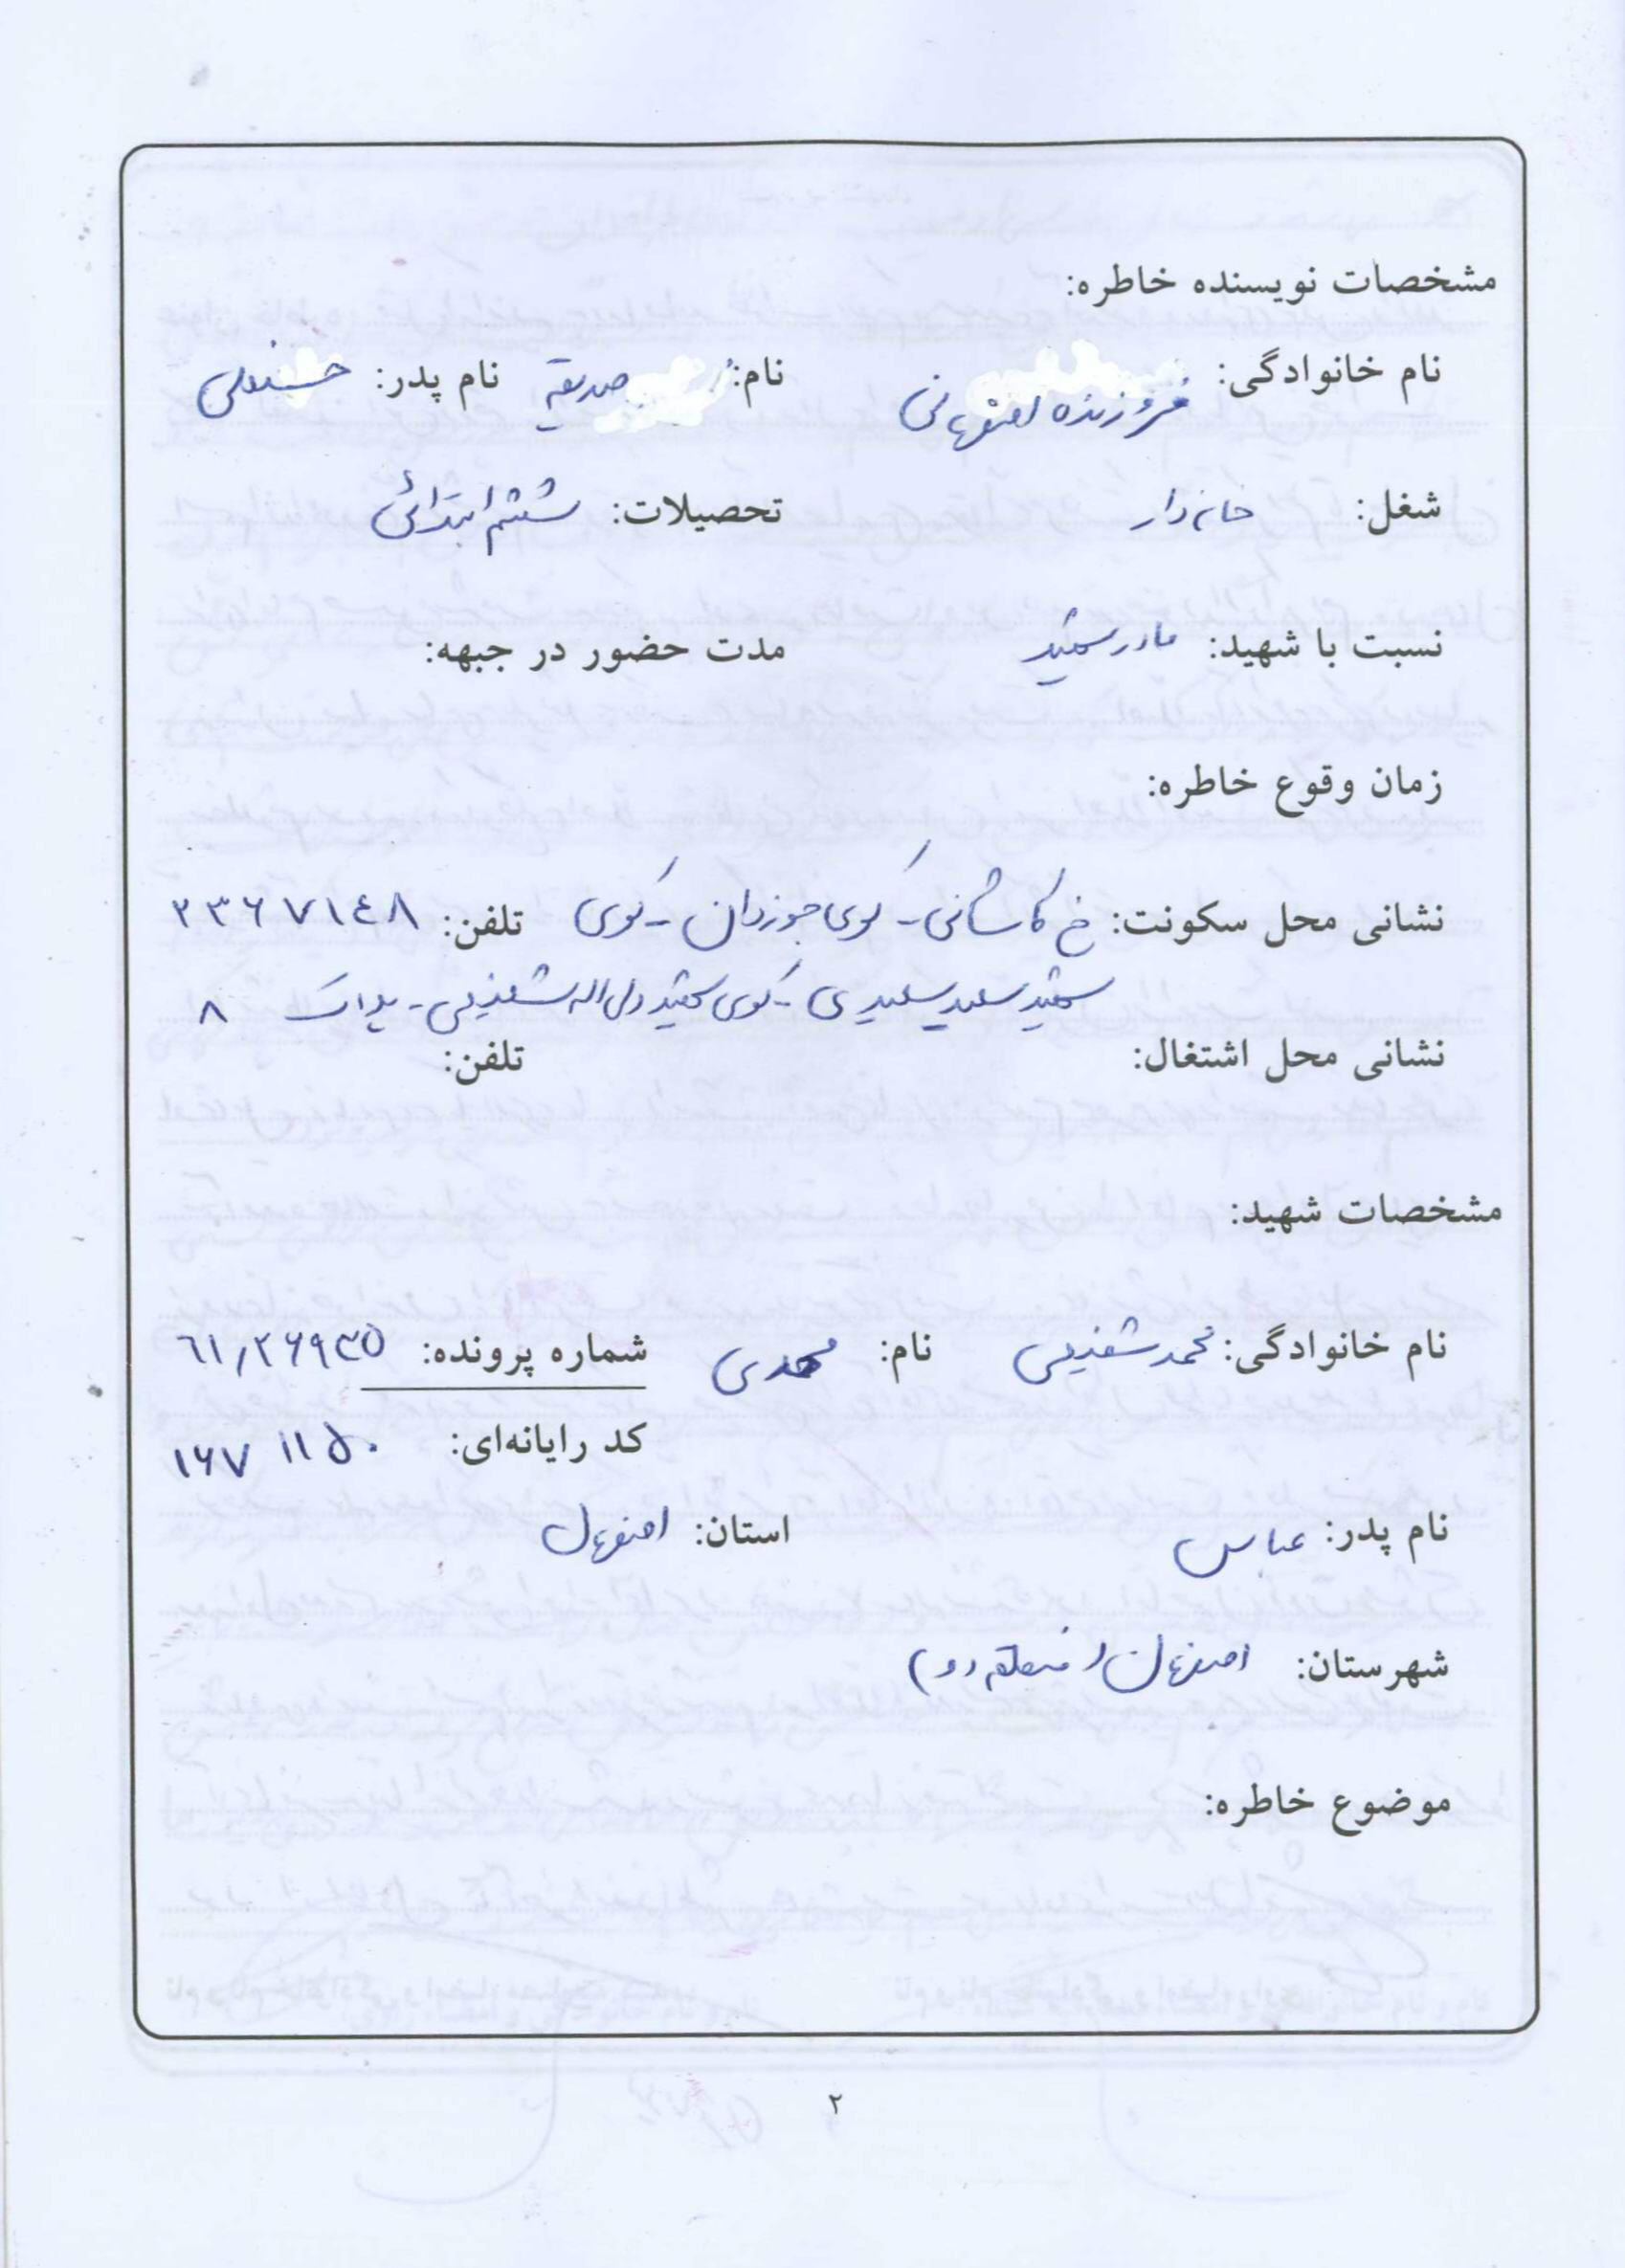 مشخصات نویسنده خاطره:
نام خانوادگی: فروزنده اصفهانی نام: صدیقه نام پدر: حسنعلی
شغل: خانه دار تحصیلات: ششم ابتدائی
نسبت با شهید: مادر شهید مدت حضور در جبهه:
زمان وقوع خاطره:
نشانی محل سکونت: خ کاشانی - کوی جوزدان - کوی تلفن: ۲۳۶۷۱۴۸
شهید سعید سعیدی - کوی شهید ولی اله شفیعی - پلاک ۸
نشانی محل اشتغال: تلفن:
مشخصات شهید:
نام خانوادگی: محمد شفیعی نام: مهدی شماره پرونده: ۶۱/۲۶۹۳۵
کد رایانه‌ای: ۱۶۷ ۱۱۵۰
نام پدر: عباس استان: اصفهان
شهرستان: اصفهان (منطقه دو)
موضوع خاطره:
۲